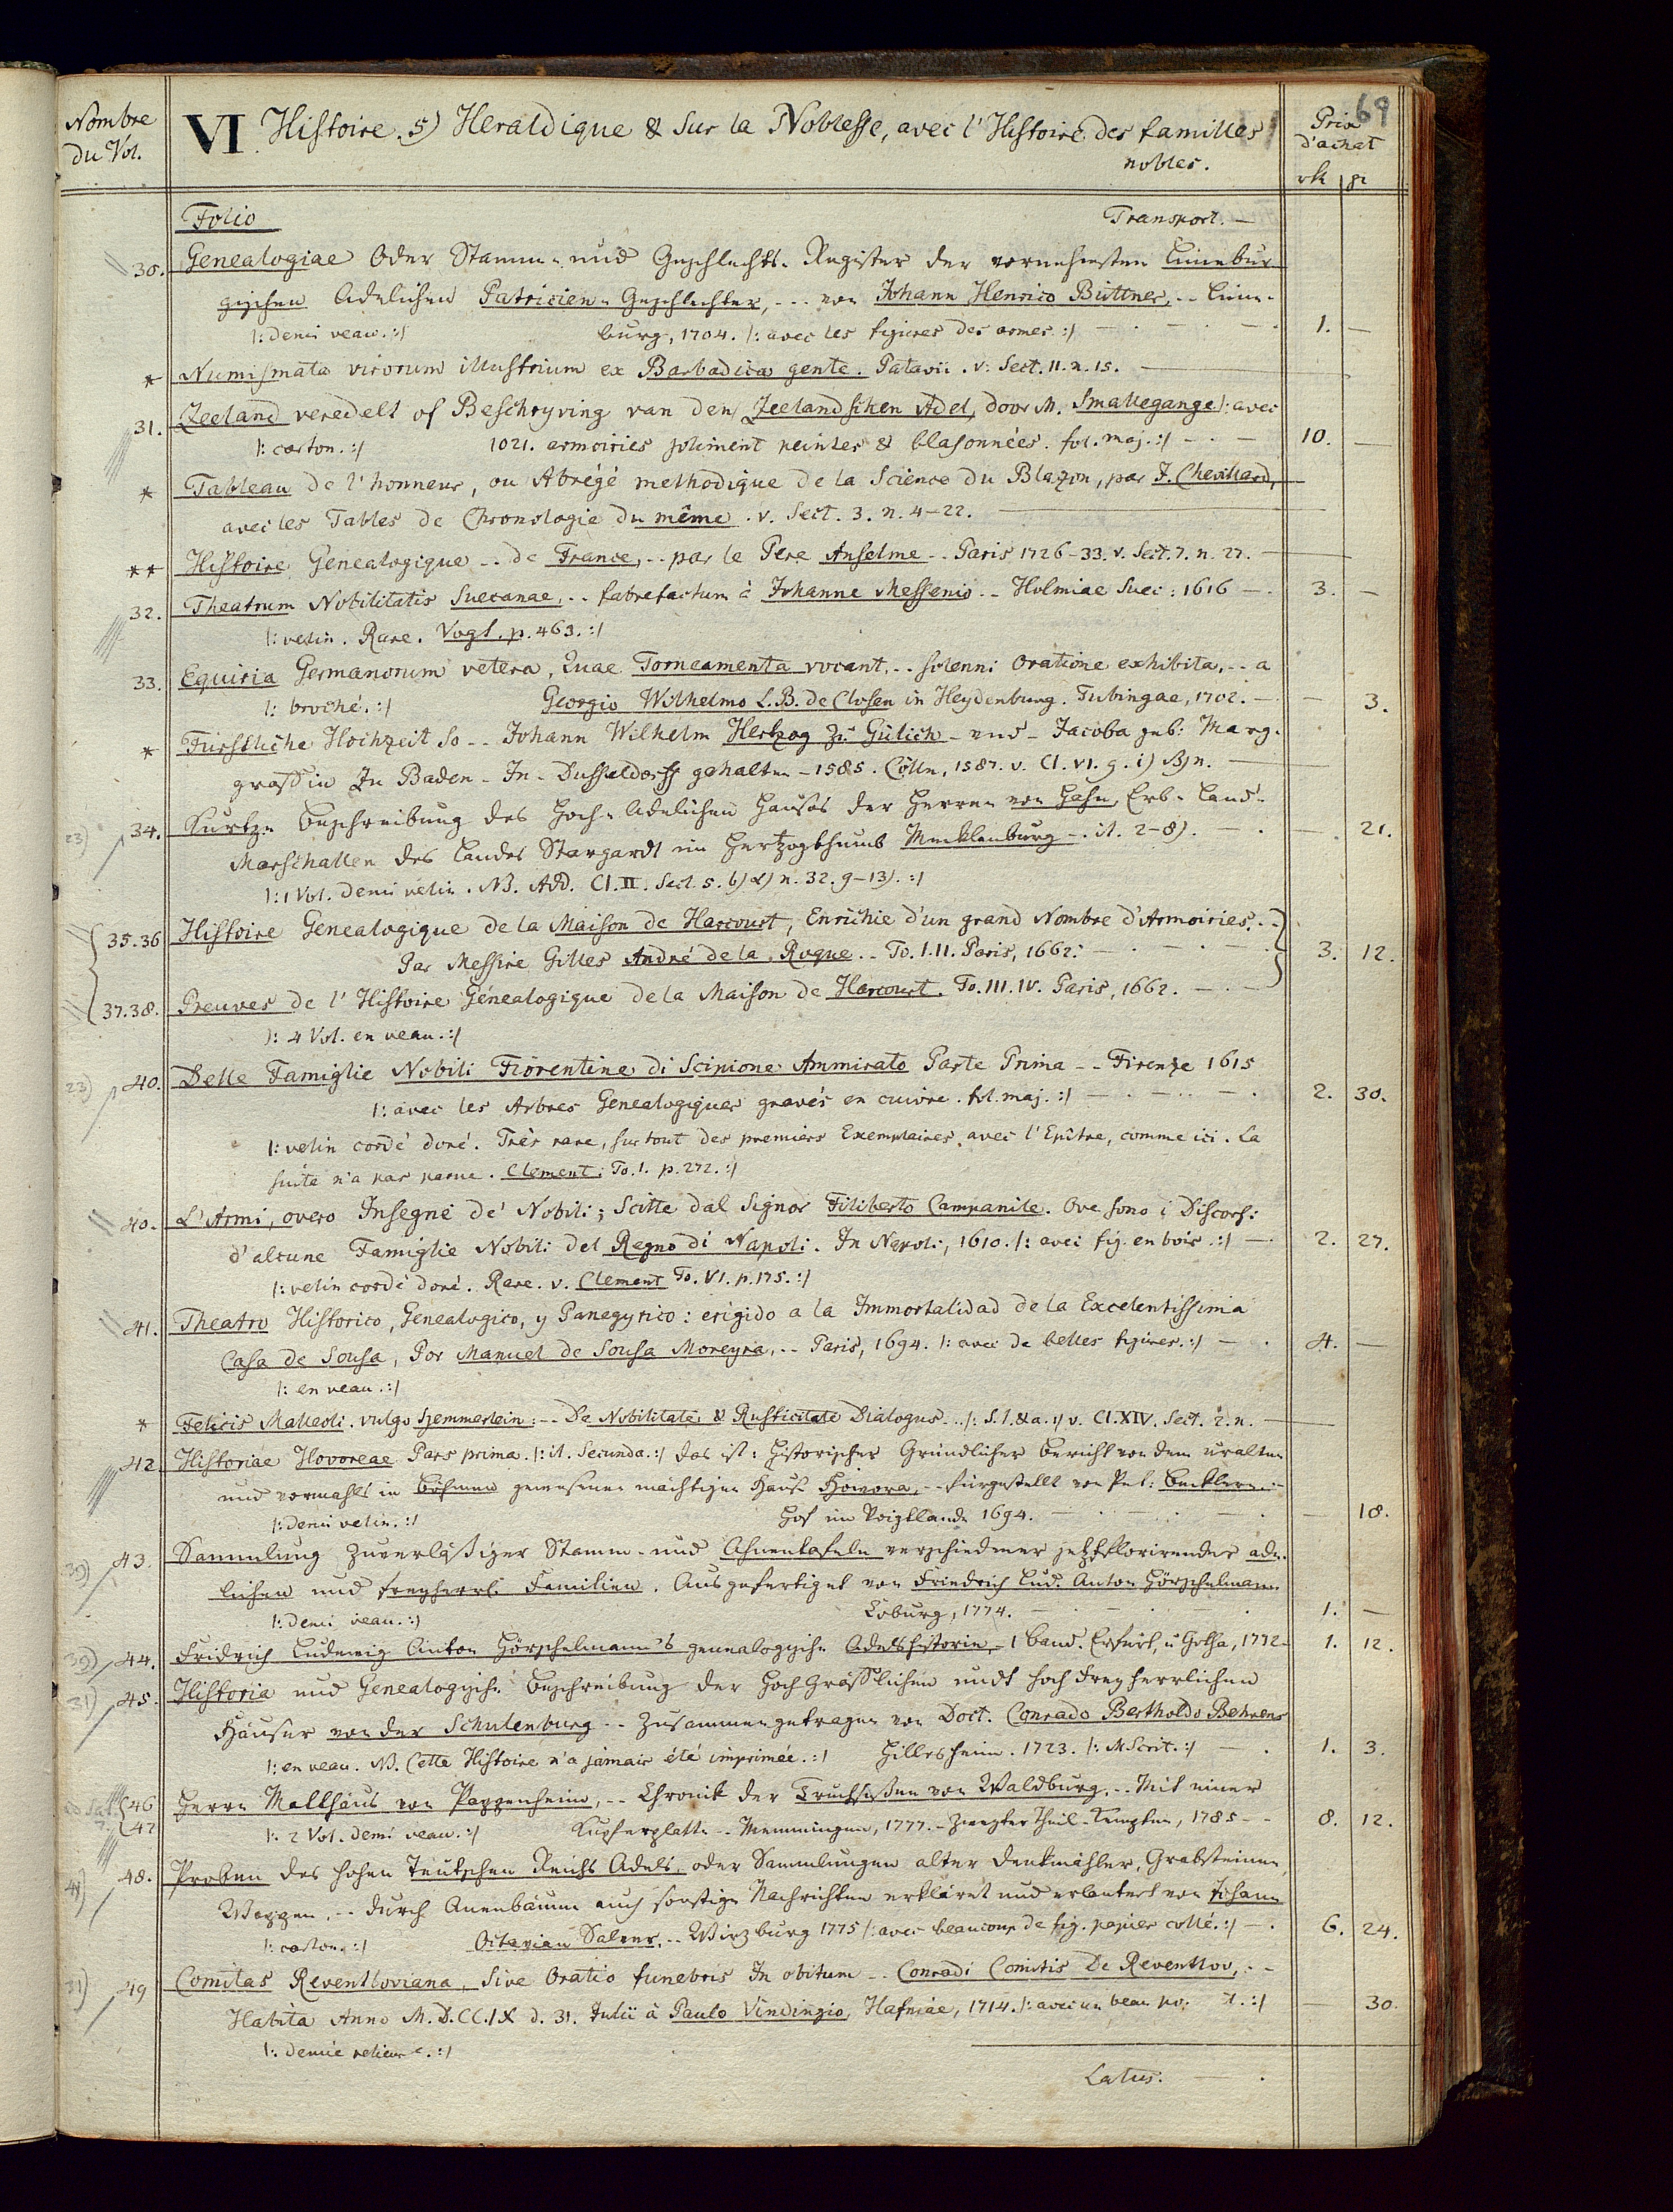 69
Nombre du Vol.
VI. Histoire. 5) Heraldique & sur la Noblesse, avec l'Histoire des familles
nobles.
Prix d'achat
rh | gr
Folio Transport. —
30. Genealogiae Oder Stamm- und Geschlechts-Register der vornehmsten Lünebur-
gischen Adelichen Patricien-Geschlechter, --- von Johann Henrico Büttner, -- Lüne-
|: demi veau. :| burg, 1704. |: avec les figures des armes. :| — 1. —
* Numismata virorum illustrium ex Barbadica gente. Patavii. v. Sect. 11. n. 15. —
31. Zeeland veredelt of Beschryving van den Zeelandschen Adel, door M. Smallegange |: avec
|: carton. :| 1021. armoiries joliment peintes & blasonnées. fol. maj. :| — 10. —
* Tableau de l'honneur, ou Abrégé methodique de la Science du Blazon, par J. Chevillard,
avec les Tables de Chronologie du même. v. Sect. 3. n. 4–22. —
** Histoire Genealogique -- de France, -- par le Pere Anselme -- Paris 1726–33. v. Sect. 7. n. 27. —
32. Theatrum Nobilitatis Suecanae, -- fabrefactum à Johanne Messenio -- Holmiae Suec: 1616 — 3. —
|: velin. Rare. Vogt. p. 463. :|
33. Equiria Germanorum vetera, Quae Torneamenta vocant, -- solenni Oratione exhibita, -- a
|: broché. :| Georgio Wilhelmo L. B. de Closen in Heydenburg. Tubingae, 1702. — — 3.
* Fürstliche Hochzeit So -- Johann Wilhelm Hertzog zu Gülich - und - Jacoba geb: Marg-
gräffin zu Baden - In - Dusseldorff gehalten - 1585. Cölln, 1587. v. Cl. VI. 9. i) β) n. —
23) 34. Kurtze Beschreibung des Hoch-Adelichen Hauses der Herren von Hahn, Erb-Land-
Marschallen des Landes Stargardt im Hertzogthumb Mecklenburg -. it. 2–8). — — 21.
|: 1 Vol. demi velin. NB. Add. Cl. II. Sect. 5. b) α) n. 32. 9–13). :|
35.36 Histoire Genealogique de la Maison de Harcourt, Enrichie d'un grand Nombre d'Armoiries, -
Par Messire Gilles André de la Roque. -- To. I. II. Paris, 1662. — 3. 12.
37.38. Preuves de l'Histoire Génealogique de la Maison de Harcourt. To. III. IV. Paris, 1662. —
|: 4 Vol. en veau. :|
23) 40. Delle Famiglie Nobili Fiorentine di Scipione Ammirato Parte Prima -- Firenze 1615
|: avec les Arbres Genealogiques gravés en cuivre. fol. maj. :| — 2. 30.
|: velin cordé doré. Très rare, surtout des premiers Exemplaires avec l'Epitre, comme ici. La
suite n'a pas parue. Clement. To. 1. p. 272. :|
40. L'Armi, overo Insegne de' Nobili; Scitte dal Signor Filiberto Campanile. Ove sono i Discorsi
d'alcune Famiglie Nobili del Regno di Napoli. In Napoli, 1610. |: avec fig. en bois. :| — 2. 27.
|: velin cordé doré. Rare. v. Clement To. VI. p. 175. :|
41. Theatro Historico, Genealogico, y Panegyrico: erigido a la Immortalidad de la Excelentissima
Casa de Sousa, Por Manuel de Sousa Moreyra, -- Paris, 1694. |: avec de belles figures. :| — 4. —
|: en veau. :|
* Felicis Malleoli. vulgo Hemmerlein: -- De Nobilitate & Rusticitate Dialogus -- |: S. l. & a. :| v. Cl. XIV. Sect. 2. n. —
42. Historiae Hovoreae Pars prima. |: it. Secunda. :| das ist: Historischer Gründlicher Bericht von dem uralten
und vormahls in Böhmen gewesenen mächtigen Hause Howora, -- fürgestellt von Pet: Becklern. -
|: demi velin. :| Hof im Voigtlande 1694. — — 18.
39) 43. Sammlung zuverläßiger Stamm- und Ahnentafeln verschiedener jetztflorirender ade-
lichen und freyherrl. Familien. Ausgefertiget von Friedrich Lud. Anton Hörschelmann
|: demi veau. :| Coburg, 1774. — 1. —
39) 44. Fridrich Ludewig Anton Hörschelmann's genealogische Adelshistorie, - 1 Band. Erfurt, u Gotha, 1772 - 1. 12.
31) 45. Historia und Genealogische Beschreibung der Hoch Gräfflichen undt hoch Freyherrlichen
Häuser von der Schulenburg -- zusammen getragen von Doct. Conrado Bertholdo Behrens
|: en veau. NB. Cette Histoire n'a jamais été imprimée. :| Hildesheim. 1723. |: MScrit. :| — 1. 3.
46 Herrn Matthäus von Pappenheim, -- Chronik der Truchsessen von Waldburg, -- Mit einer
47 |: 2 Vol. demi veau. :| Kupferplatte -- Memmingen, 1777. - Zweyter Theil - Kempten, 1785 -- 8. 12.
48. Proben des hohen Teutschen Reichs Adels, oder Sammlungen alter Denkmähler, Grabsteinen,
Wappen, -- durch Anenbäume auch sonstige Nachrichten erkläret und erläutert von Johann
|: carton. :| Octavian Salver. -- Wirzburg 1775 |: avec beaucoup de fig. papier collé. :| — 6. 24.
31) 49 Comitas Reventloviana, Sive Oratio funebris In obitum -- Conradi Comitis De Reventlov, --
Habita Anno M.D.CC.IX d. 31. Julii à Paulo Vindingio, Hafniae, 1714. |: avec un beau :| — 30.
|: demie relieure. :|
Latus. —